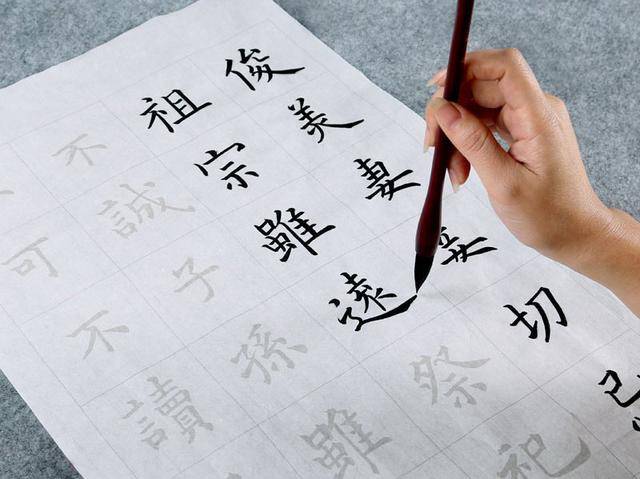 俊美妻妾切忌
祖宗雖遠祭祀
不誠子孫雖
可不讀